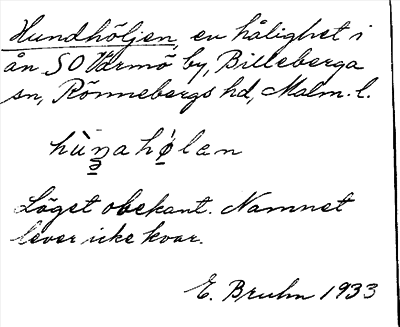 Hundhöljen, en hålighet i
ån SO Värmö by, Billeberga
sn, Rönnebergs hd, Malm. l.
hùn̥ahø̀lan
Läget obekant. Namnet
lever icke kvar.
E. Bruhn 1933